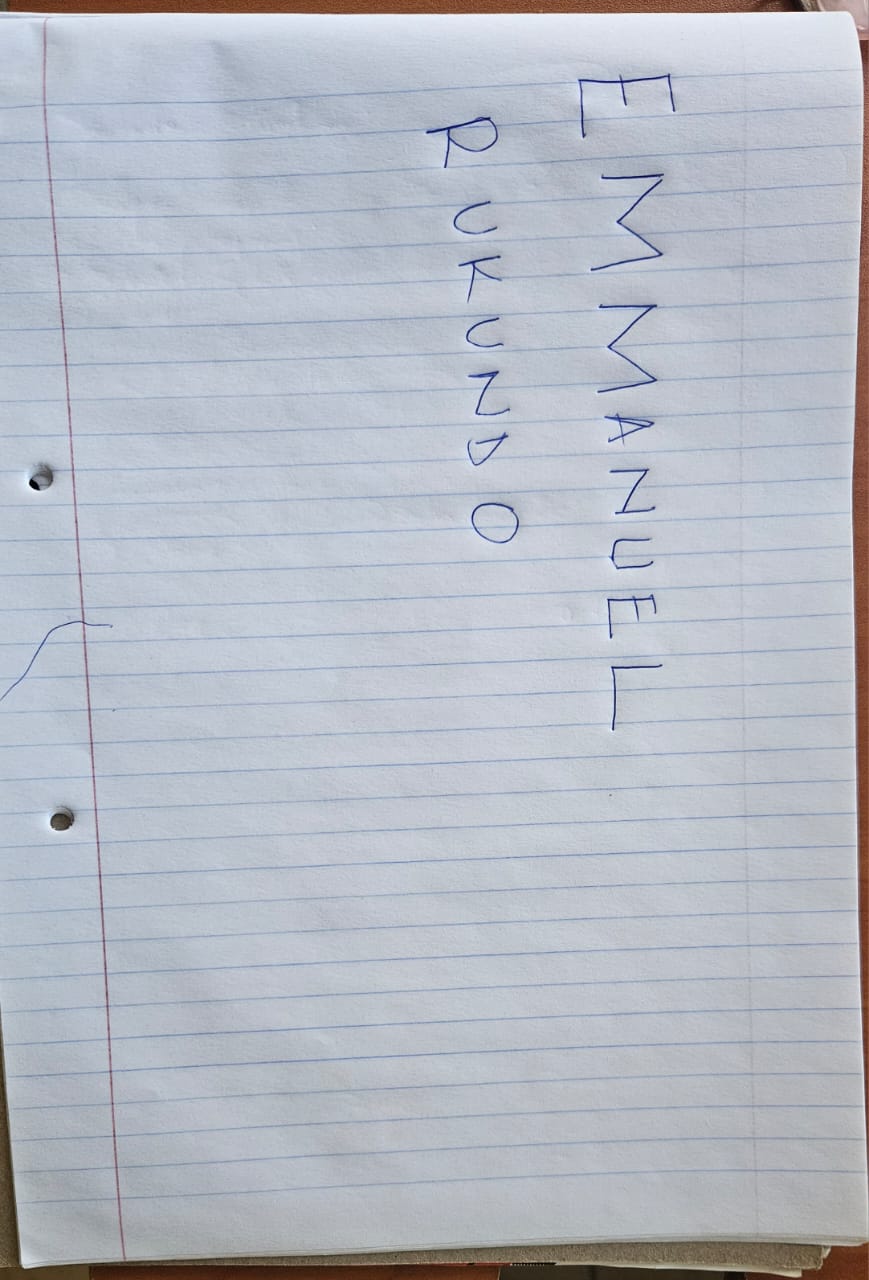 EMMANUEL
RUKUNDO